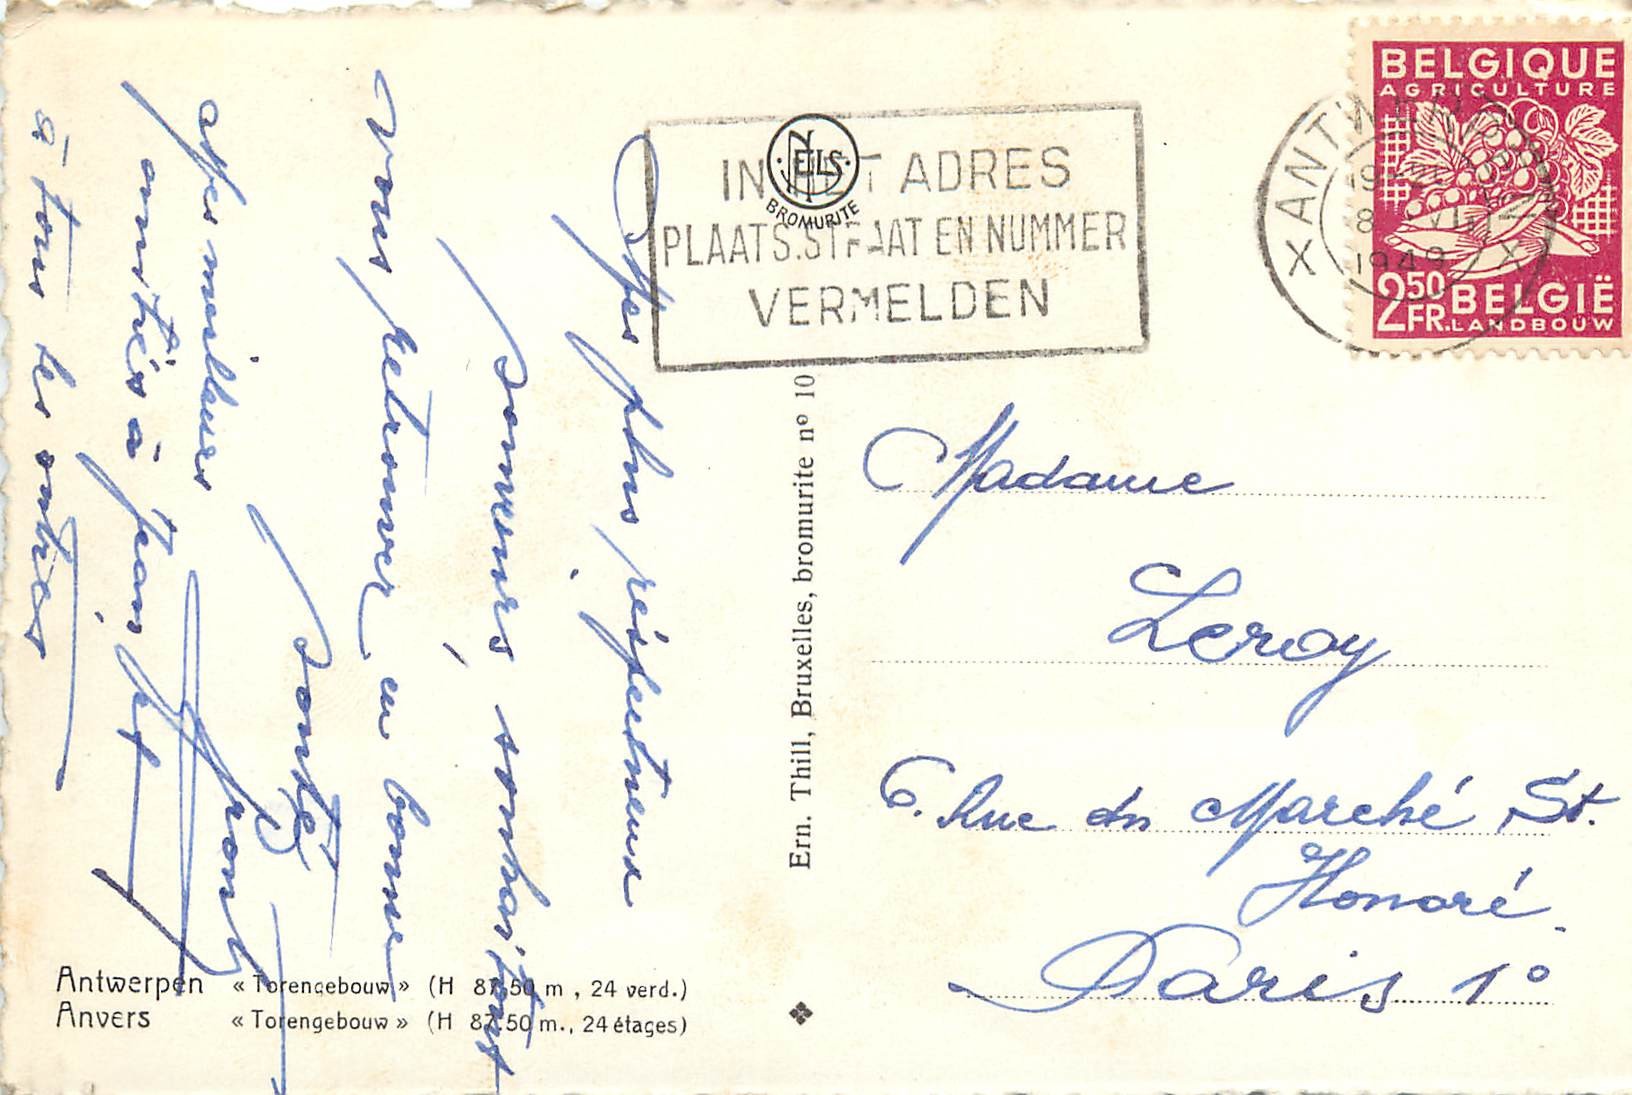 Mes plus respectueux
souvenirs, souhaitant
vous retrouver en bonne
santé.
Mes meilleures
amitiés à Jean,
à tous les autres
NELS
BROMURITE
IN HET ADRES
PLAATS. STRAAT EN NUMMER
VERMELDEN
X ANTWERPEN X
1948
BELGIQUE
AGRICULTURE
2,50 FR. BELGIË
LANDBOUW
Ern. Thill, Bruxelles, bromurite nº 10
Madame
Leroy
6. Rue du Marché St.
Honoré.
Paris 1º
Antwerpen « Torengebouw » (H 87,50 m , 24 verd.)
Anvers « Torengebouw » (H 87,50 m., 24 étages)